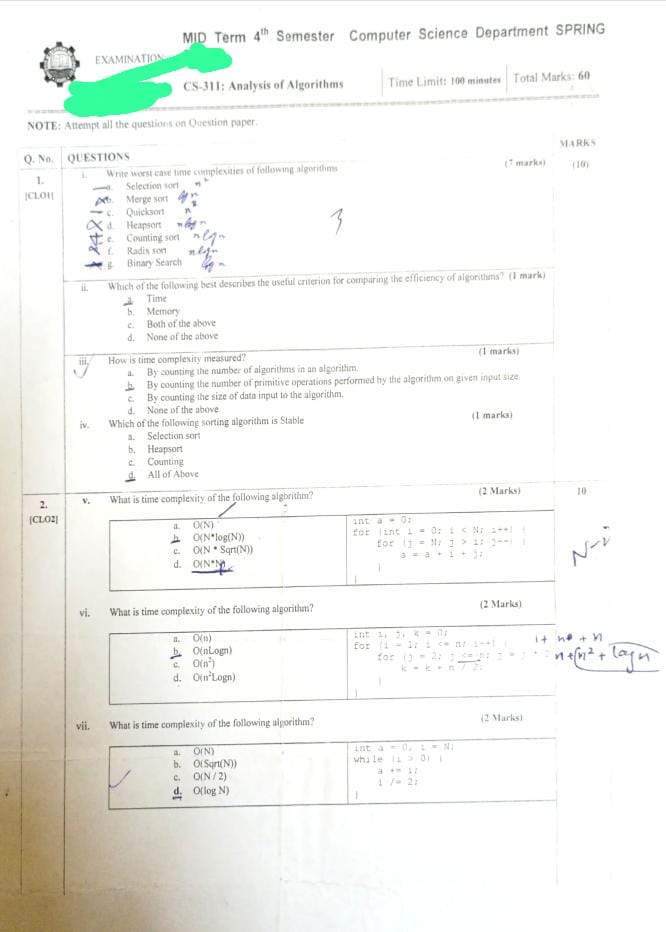 MID Term 4th Semester Computer Science Department SPRING
EXAMINATION
CS-311: Analysis of Algorithms
Time Limit: 100 minutes
Total Marks: 60
NOTE: Attempt all the questions on Question paper.
MARKS
Q. No. QUESTIONS
1. i. Write worst case time complexities of following algorithms (7 marks) (10)
[CLO1] a. Selection sort n²
b. Merge sort
c. Quicksort n
d. Heapsort 3
e. Counting sort nlgn
f. Radix sort nlgn
g. Binary Search lgn
ii. Which of the following best describes the useful criterion for comparing the efficiency of algorithms? (1 mark)
a. Time
b. Memory
c. Both of the above
d. None of the above
iii. How is time complexity measured? (1 marks)
a. By counting the number of algorithms in an algorithm.
b. By counting the number of primitive operations performed by the algorithm on given input size.
c. By counting the size of data input to the algorithm.
d. None of the above
iv. Which of the following sorting algorithm is Stable (1 marks)
a. Selection sort
b. Heapsort
c. Counting
d. All of Above
2. v. What is time complexity of the following algorithm? (2 Marks) 10
[CLO2]
a. O(N)
b. O(N*log(N))
c. O(N * Sqrt(N))
d. O(N*N)
int a = 0;
for (int i = 0; i < N; i++) {
for (j = N; j > i; j--) {
a = a + i + j;
}
}
N-i
vi. What is time complexity of the following algorithm? (2 Marks)
a. O(n)
b. O(nLogn)
c. O(n²)
d. O(n²Logn)
int i, j, k = 0;
for (i = 1; i <= n; i++) {
for (j = 2; j <= n; j = j * 2
k = k + n / 2;
}
}
1 + n + n
n + n² + logn
vii. What is time complexity of the following algorithm? (2 Marks)
a. O(N)
b. O(Sqrt(N))
c. O(N / 2)
d. O(log N)
int a = 0, i = N;
while (i > 0) {
a += i;
i /= 2;
}